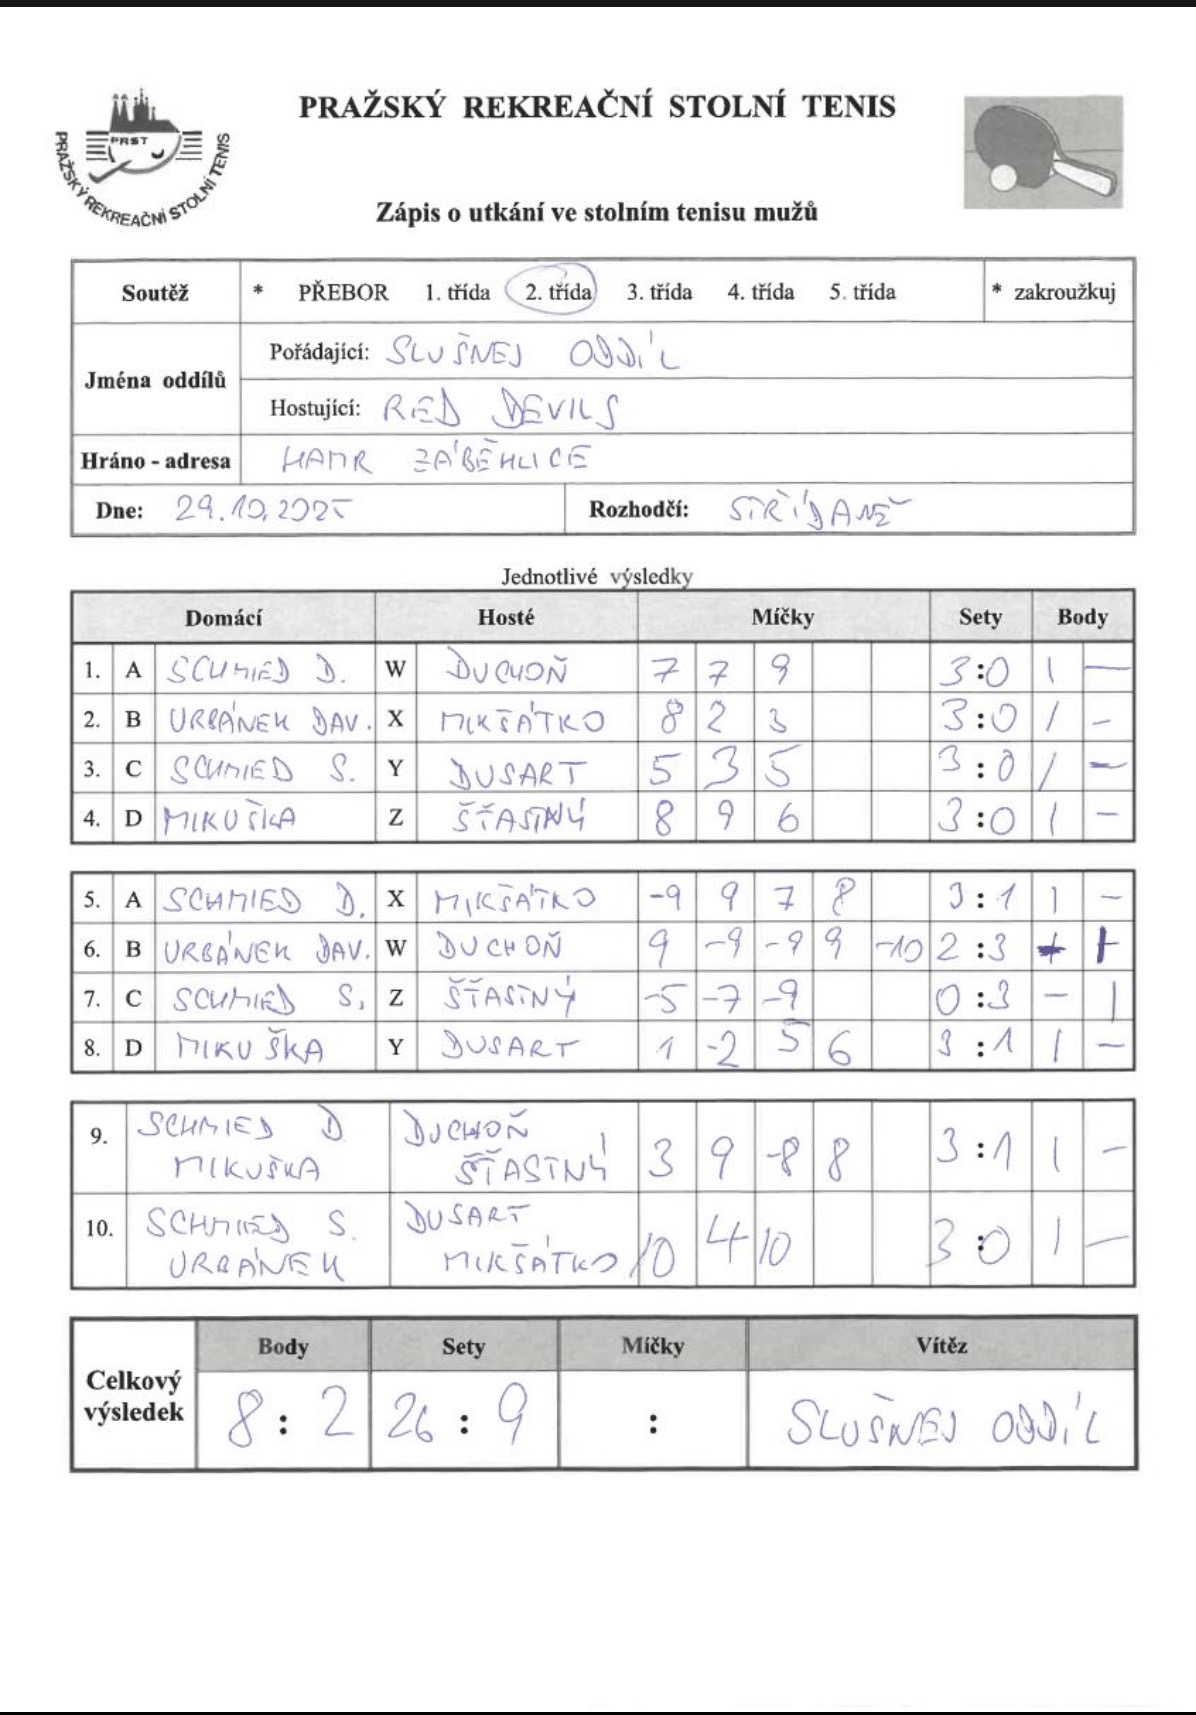 PRAŽSKÝ REKREAČNÍ STOLNÍ TENIS
PRST
PRAŽSKÝ REKREAČNÍ STOLNÍ TENIS
Zápis o utkání ve stolním tenisu mužů
Soutěž * PŘEBOR 1. třída 2. třída 3. třída 4. třída 5. třída * zakroužkuj
Jména oddílů
Pořádající: SLUŠNEJ ODDÍL
Hostující: RED DEVILS
Hráno - adresa HAMR ZÁBĚHLICE
Dne: 29.10.2025 Rozhodčí: STŘÍDANĚ
Jednotlivé výsledky
Domácí Hosté Míčky Sety Body
1. A SCHMIED D. W DUCHOŇ 7 7 9 3:0 1 —
2. B URBÁNEK DAV. X MIKŠÁTKO 8 2 3 3:0 1 -
3. C SCHMIED S. Y DUSART 5 3 5 3:0 1 -
4. D MIKUŠKA Z ŠŤASTNÝ 8 9 6 3:0 1 -
5. A SCHMIED D. X MIKŠÁTKO -9 9 7 8 3:1 1 -
6. B URBÁNEK DAV. W DUCHOŇ 9 -9 -9 9 -10 2:3 1
7. C SCHMIED S. Z ŠŤASTNÝ -5 -7 -9 0:3 - 1
8. D MIKUŠKA Y DUSART 1 -2 5 6 3:1 1 -
9. SCHMIED D DUCHOŇ
MIKUŠKA ŠŤASTNÝ 3 9 -8 8 3:1 1 -
10. SCHMIED S. DUSART
URBÁNEK MIKŠÁTKO 10 4 10 3:0 1 -
Body Sety Míčky Vítěz
Celkový výsledek 8:2 26:9 : SLUŠNEJ ODDÍL